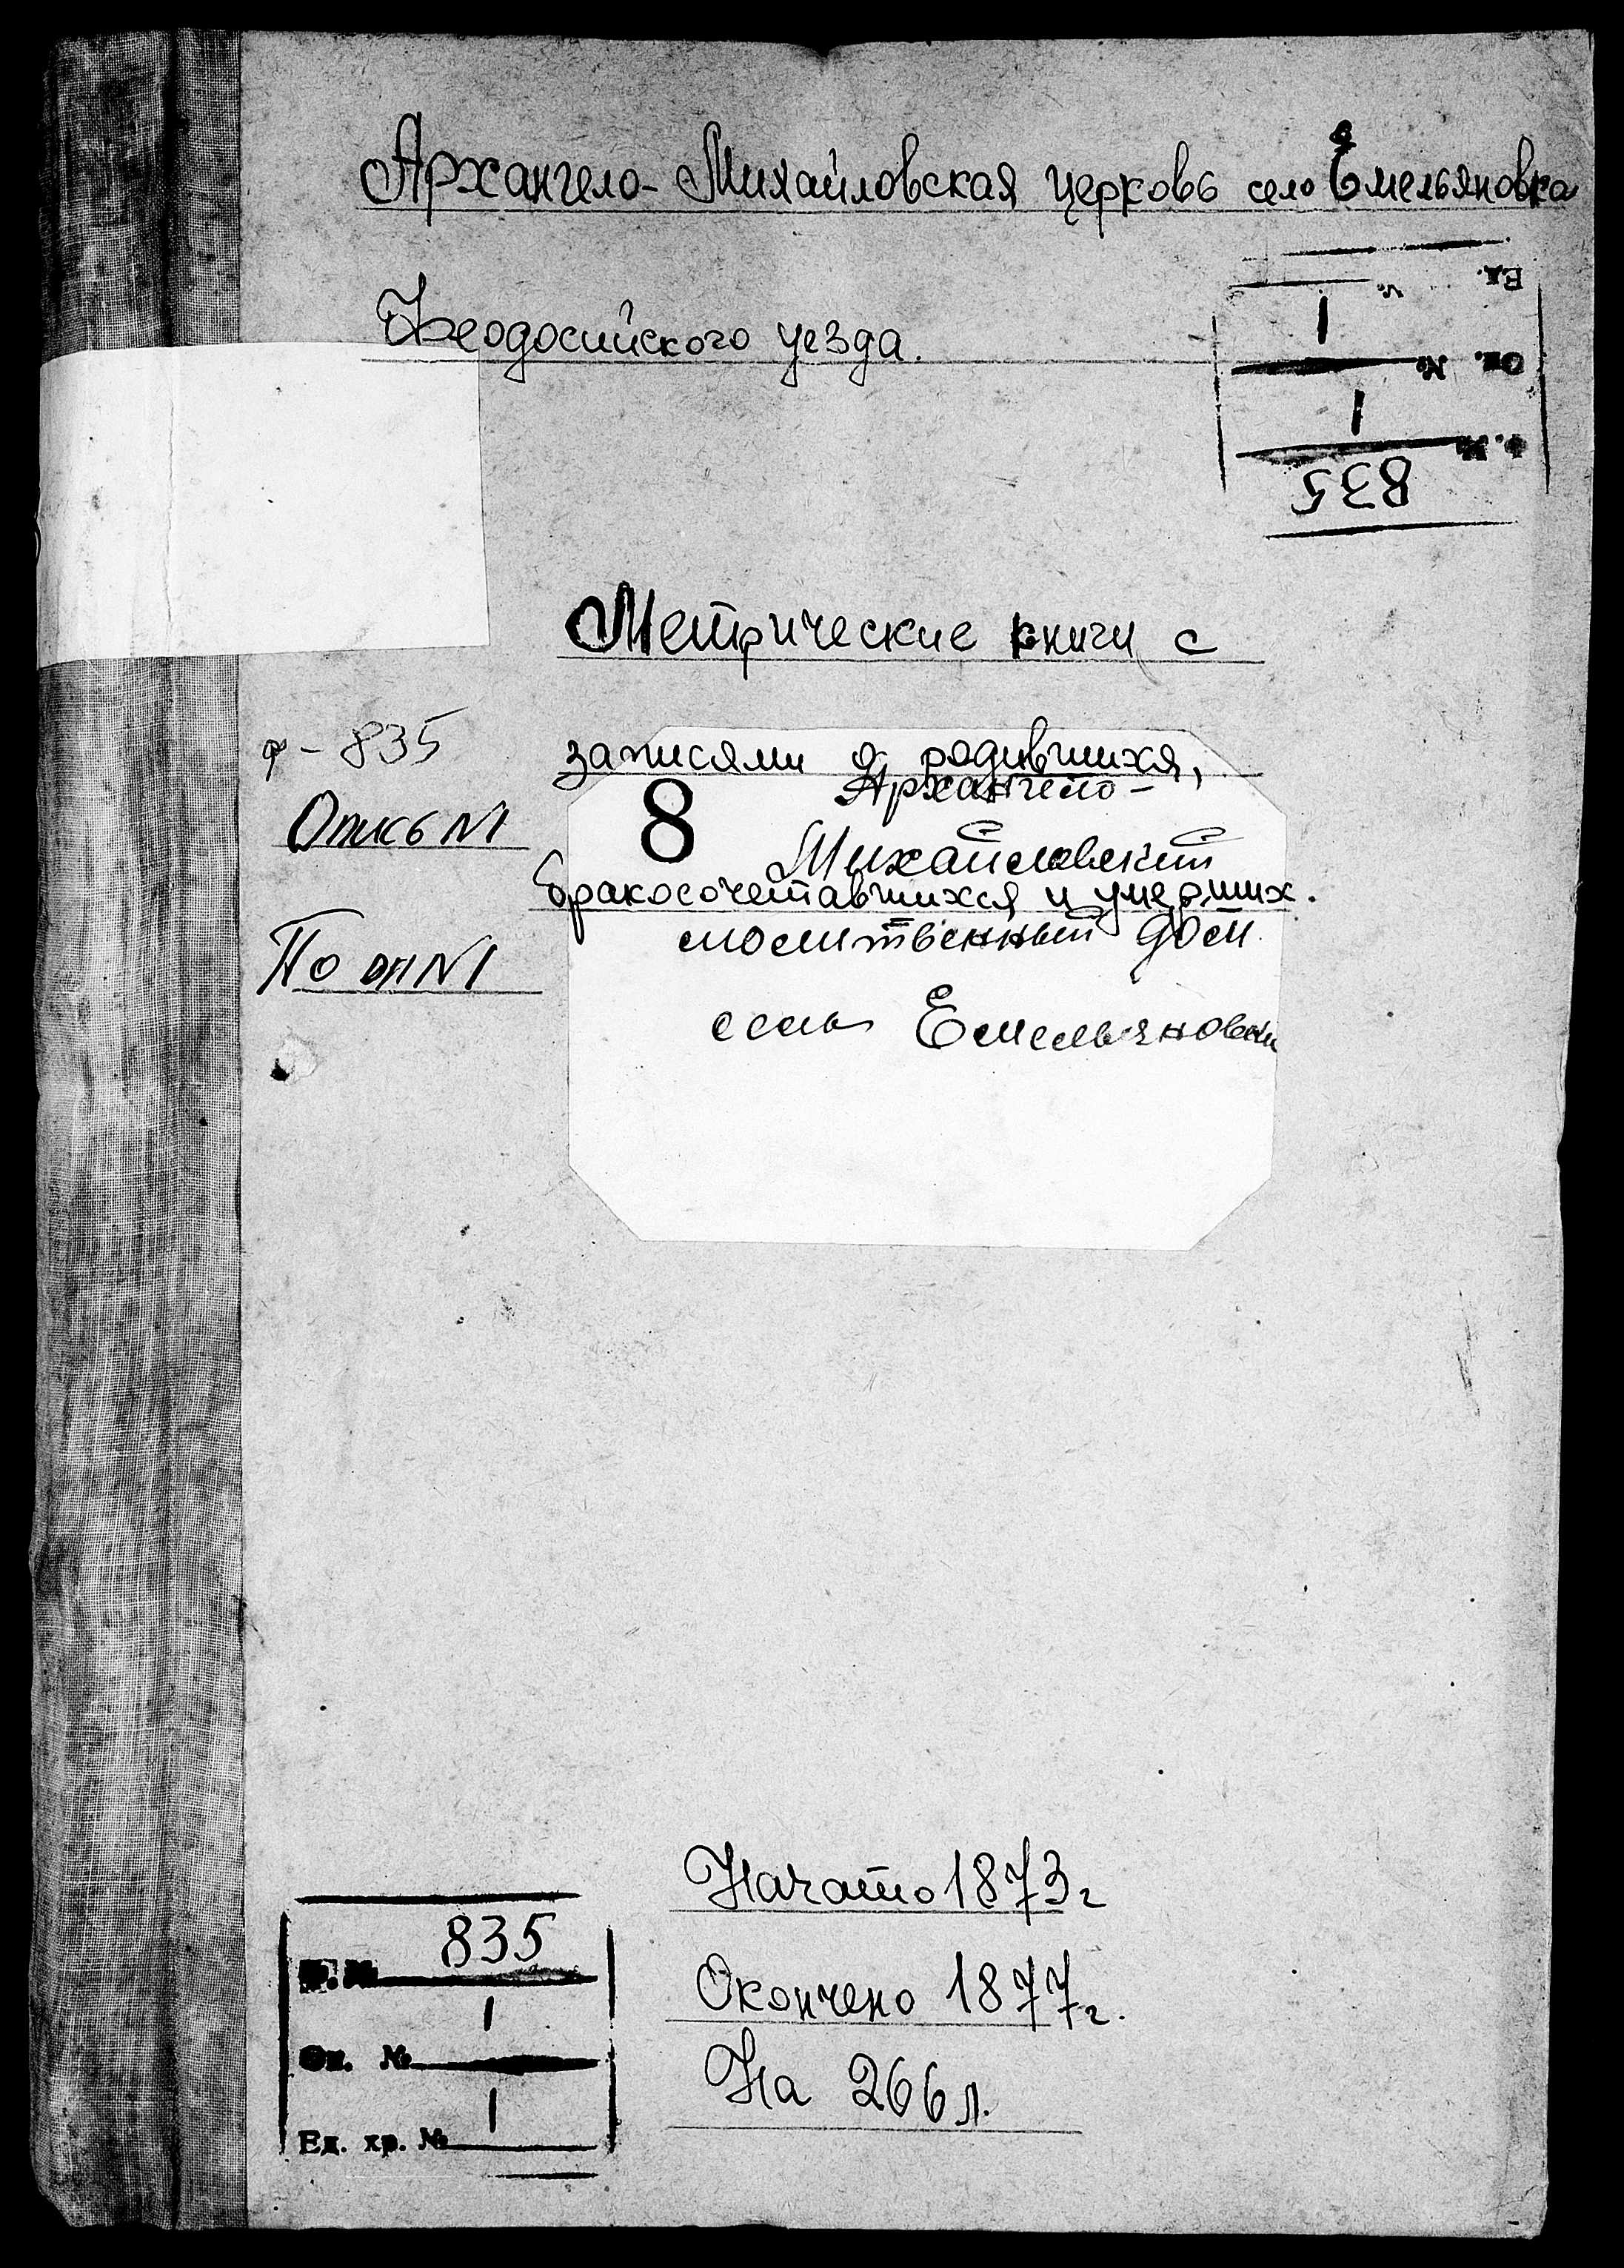 Архангело-Михайловская церковь село Емельяновка
Феодосийского уезда.
Ед. №
1
Оп. №
1
Ф. №
835
Метрические книги с
ф-835
записями о родившихся,
8
Архангело-
Опись №1
Михайловский
бракосочетавшихся и умерших.
молитвенный дом
По оп №1
села Емельяновки
Начато 1873г
Ф. № 835
Окончено 1877г.
Оп. № 1
На 266 л.
Ед. хр. № 1